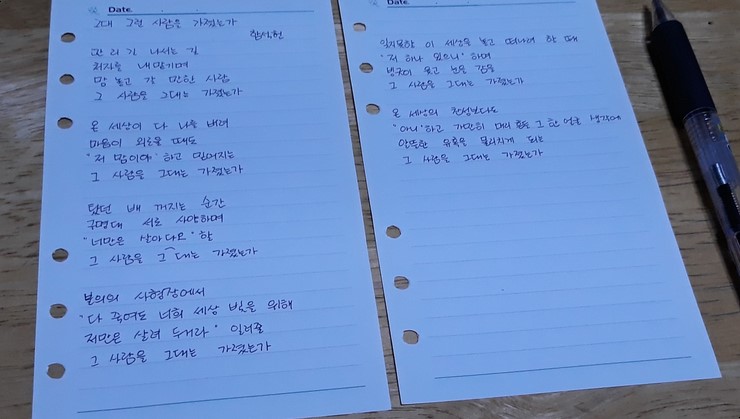 Date.
그대 그런 사람을 가졌는가
함석헌
만 리 길 나서는 길
처자를 내맡기며
맘 놓고 갈 만한 사람
그 사람을 그대는 가졌는가
온 세상이 다 나를 버려
마음이 외로울 때도
"저 맘이야" 하고 믿어지는
그 사람을 그대는 가졌는가
탔던 배 꺼지는 순간
구명대 서로 사양하며
"너만은 살아다오" 할
그 사람을 그대는 가졌는가
불의의 사형장에서
"다 죽여도 너희 세상 빛을 위해
저만은 살려 두거라" 일러줄
그 사람을 그대는 가졌는가
Date.
잊지못할 이 세상을 놓고 떠나려 할 때
"저 하나 있으니" 하며
빙긋이 웃고 눈을 감을
그 사람을 그대는 가졌는가
온 세상의 찬성보다도
"아니" 하고 가만히 머리 흔들 그 한 얼굴 생각에
알뜰한 유혹을 물리치게 되는
그 사람을 그대는 가졌는가